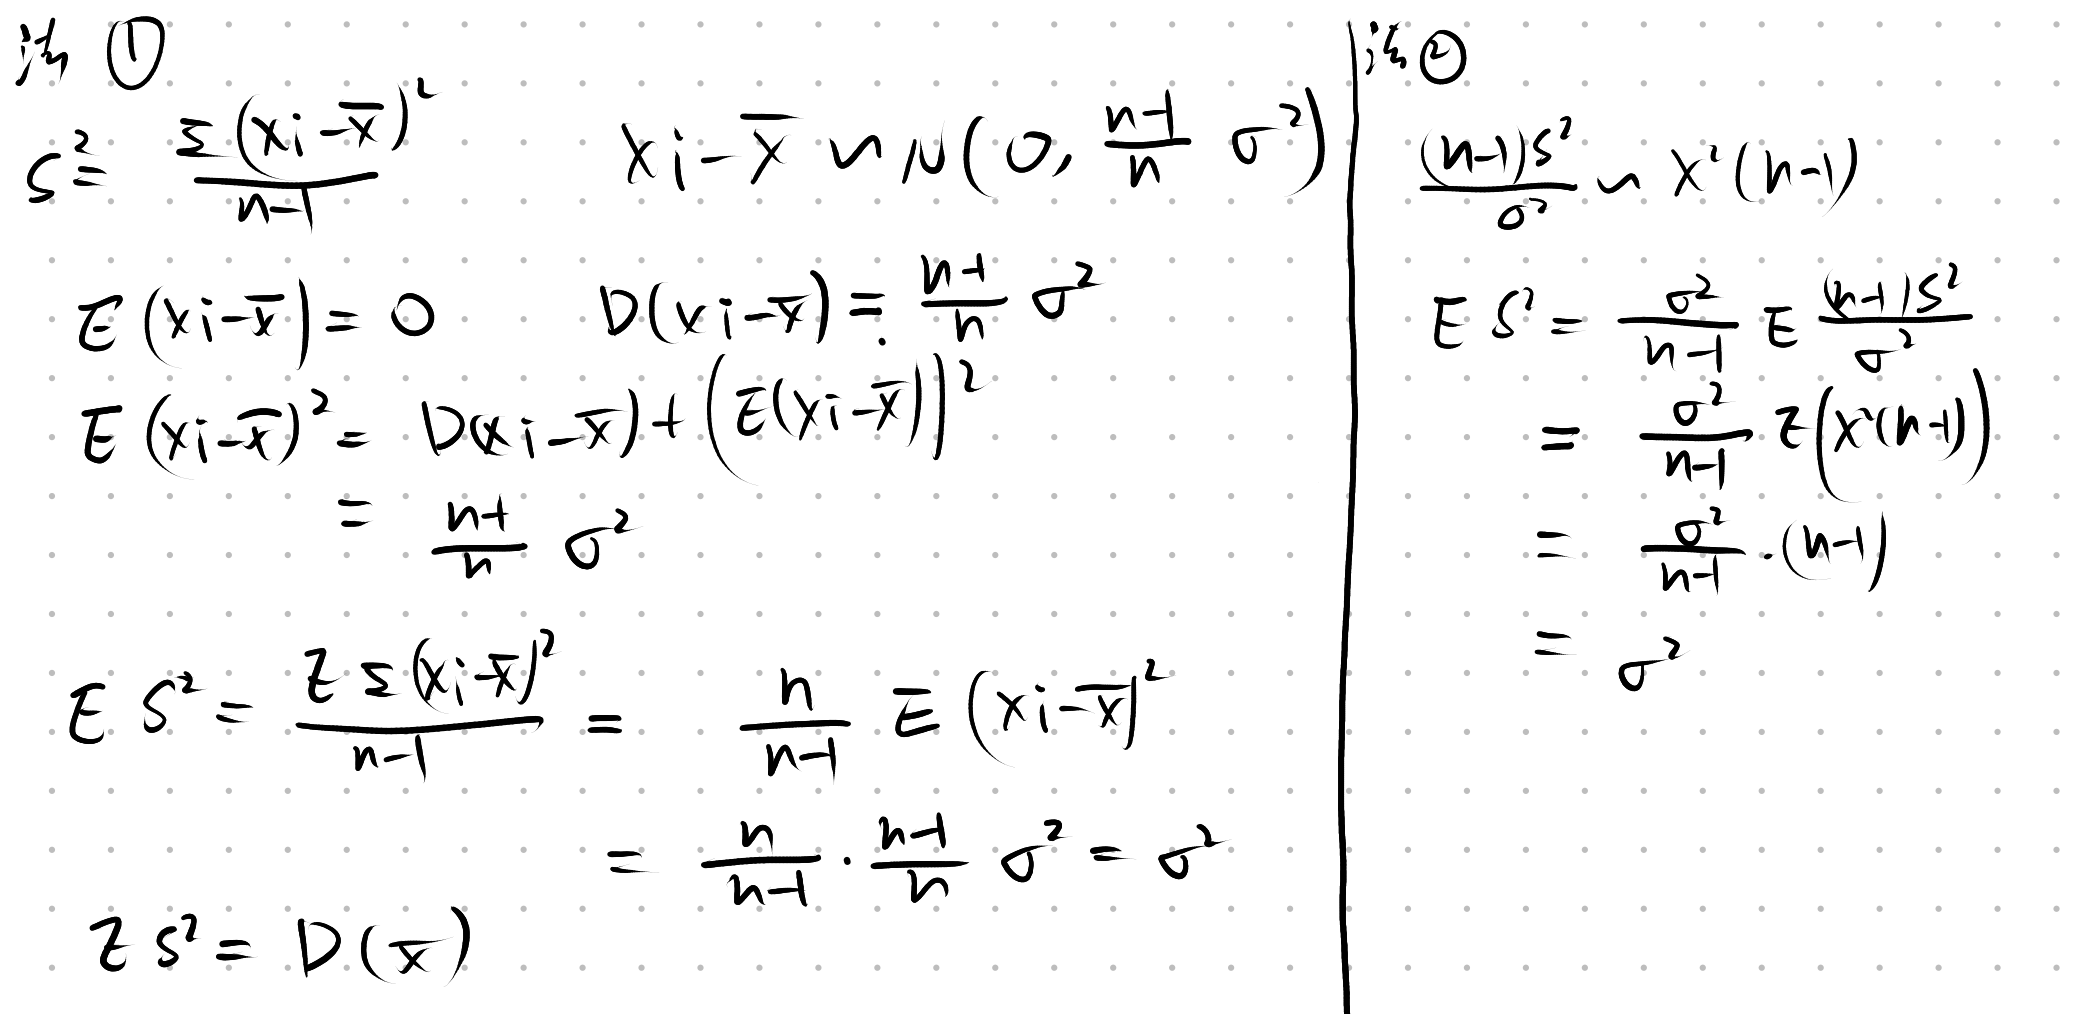 法 ①
S² = Σ(Xi-X̄)² / (n-1)    Xi-X̄ ~ N(0, (n-1)/n σ²)
E(Xi-X̄) = 0    D(Xi-X̄) = (n-1)/n σ²
E(Xi-X̄)² = D(Xi-X̄) + (E(Xi-X̄))²
= (n-1)/n σ²
E S² = E Σ(Xi-X̄)² / (n-1) = n/(n-1) E(Xi-X̄)²
= n/(n-1) · (n-1)/n σ² = σ²
E S² = D(X)
法 ②
(n-1)S²/σ² ~ χ²(n-1)
E S² = σ²/(n-1) E (n-1)S²/σ²
= σ²/(n-1) E(χ²(n-1))
= σ²/(n-1) · (n-1)
= σ²